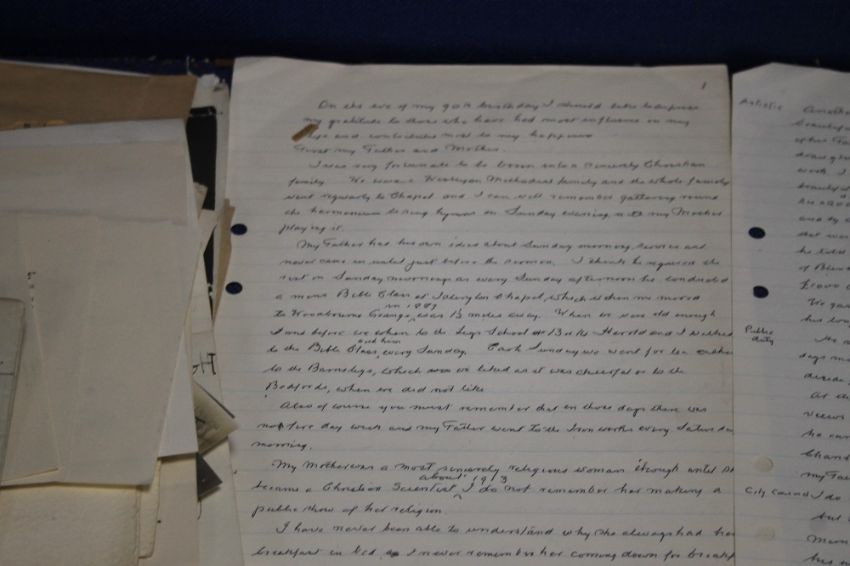 1
On the eve of my 90th birthday I should like to express
my gratitude to those who have had most influence on my
life and contributed most to my happiness
First my Father and Mother.
I was very fortunate to be born into a sincerely Christian
family. We were a Wesleyan Methodist family and the whole family
went regularly to Chapel and I can well remember gathering round
the harmonium to sing hymns on Sunday evening with my Mother
playing it.
My Father had his own ideas about Sunday morning service and
never came in until just before the sermon. I think he required the
rest on Sunday mornings as every Sunday afternoon he conducted
a mens Bible Class at Chapel, which when we moved
in 1897
to Woodbourne Grange, was 1½ miles away. When we were old enough
and before we went to the Leys School Harold and I walked
with him
to the Bible Class, every Sunday. Each Sunday we went for tea either
to the Barnsleys, which we liked as it was cheerful or to the
Bedfords, when we did not like
Also of course you must remember that in those days there was
not five day week and my Father went to the Iron works every Saturday
morning.
My Mother was a most sincerely religious woman though until she
about 1913
became a Christian Scientist, I do not remember her making a
public show of her religion.
I have never been able to understand why she always had her
breakfast in bed, I never remember her coming down for breakf
Artistic
Another
beautiful
work I
that was
he told
Public
duty
He
days
decide
At
views
he
my Fa
City Council
I do
but